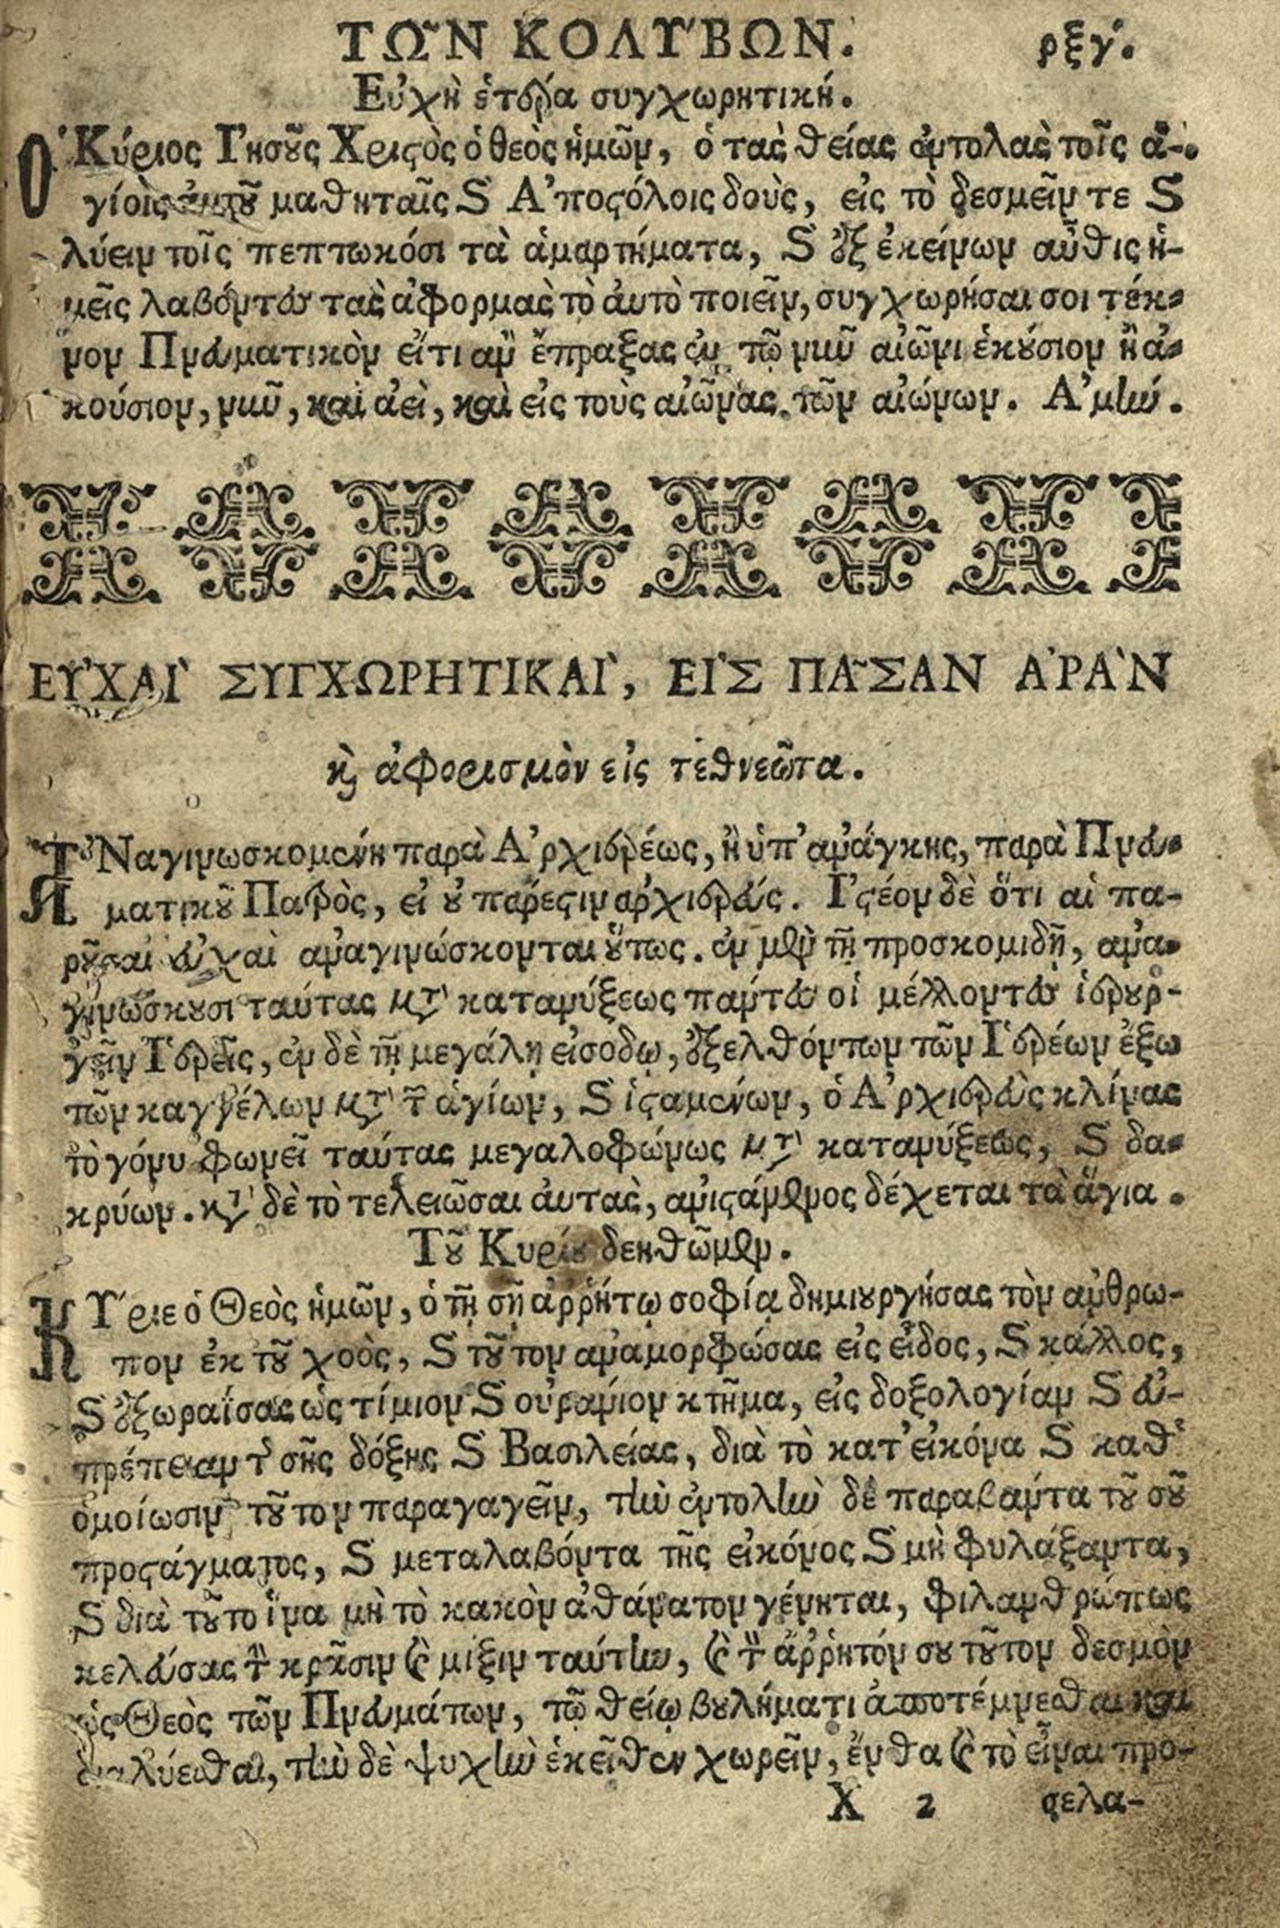 ΤΩ͂Ν ΚΟΛΎΒΩΝ. ρξγ΄.
Εὐχὴ ἑτέρα συγχωρητική.
Ὁ Κύριος Ἰησοῦς Χριστὸς ὁ θεὸς ἡμῶν, ὁ τὰς θείας ἐντολὰς τοῖς ἁ-
γίοις αὐτοῦ μαθηταῖς καὶ Ἀποστόλοις δοὺς, εἰς τὸ δεσμεῖν τε καὶ
λύειν τοῖς πεπτωκόσι τὰ ἁμαρτήματα, καὶ ἐξ ἐκείνων αὖθις ἡ-
μεῖς λαβόντες τὰς ἀφορμὰς τὸ αὐτὸ ποιεῖν, συγχωρήσαι σοι τέκ-
νον Πνευματικὸν εἴτι ἂν ἔπραξας ἐν τῷ νῦν αἰῶνι ἑκούσιον ἢ ἀ-
κούσιον, νῦν, καὶ ἀεὶ, καὶ εἰς τοὺς αἰῶνας τῶν αἰώνων. Ἀμήν.
ΕΥ̓ΧΑῚ ΣΥΓΧΩΡΗΤΙΚΑῚ, ΕἸΣ ΠΑ͂ΣΑΝ ΑΡ̓ΑᾺΝ
καὶ ἀφορισμὸν εἰς τεθνεῶτα.
Ἀναγινωσκομένη παρὰ Ἀρχιερέως, ἢ ὑπ' ἀνάγκης, παρὰ Πνευ-
ματικοῦ Πατρὸς, εἰ οὐ πάρεστιν ἀρχιερεύς. Ἰστέον δὲ ὅτι αἱ πα-
ροῦσαι εὐχαὶ ἀναγινώσκονται οὕτως. ἐν μὲν τῇ προσκομιδῇ, ἀνα-
γινώσκουσι ταύτας μετὰ κατανύξεως πάντες οἱ μέλλοντες ἱερουρ-
γεῖν Ἱερεῖς, ἐν δὲ τῇ μεγάλῃ εἰσοδῳ, ἐξελθόντων τῶν Ἱερέων ἔξω
τῶν καγγέλων μετὰ τῶν ἁγίων, καὶ ἱσταμένων, ὁ Ἀρχιερεὺς κλίνας
τὸ γόνυ φωνεῖ ταύτας μεγαλοφώνως μετὰ κατανύξεως, καὶ δα-
κρύων. μετὰ δὲ τὸ τελειῶσαι αὐτὰς, ἀνιστάμενος δέχεται τὰ ἅγια.
Τοῦ Κυρίου δεηθῶμεν.
Κύριε ὁ Θεὸς ἡμῶν, ὁ τῇ σῇ ἀῤῥήτῳ σοφίᾳ δημιουργήσας τὸν ἄνθρω-
πον ἐκ τοῦ χοὸς, καὶ τοῦτον ἀναμορφώσας εἰς εἶδος, καὶ κάλλος,
καὶ ἐξωραΐσας ὡς τίμιον καὶ οὐράνιον κτῆμα, εἰς δοξολογίαν καὶ εὐ-
πρέπειαν τῆς σῆς δόξης καὶ Βασιλείας, διὰ τὸ κατ' εἰκόνα καὶ καθ'
ὁμοίωσιν τοῦτον παραγαγεῖν, τὴν ἐντολὴν δὲ παραβάντα τοῦ σοῦ
προστάγματος, καὶ μεταλαβόντα τῆς εἰκόνος καὶ μὴ φυλάξαντα,
καὶ διὰ τοῦτο ἵνα μὴ τὸ κακὸν ἀθάνατον γένηται, φιλανθρώπως
κελεύσας τὴν κρᾶσιν καὶ μίξιν ταύτην, καὶ τὸν ἄῤῥητόν σου τοῦτον δεσμὸν
ὡς Θεὸς τῶν Πνευμάτων, τῷ θείῳ βουλήματι ἀποτέμνεσθαι καὶ
διαλύεσθαι, τὴν δὲ ψυχὴν ἐκεῖθεν χωρεῖν, ἔνθα καὶ τὸ εἶναι προ-
Χ 2 σελα-